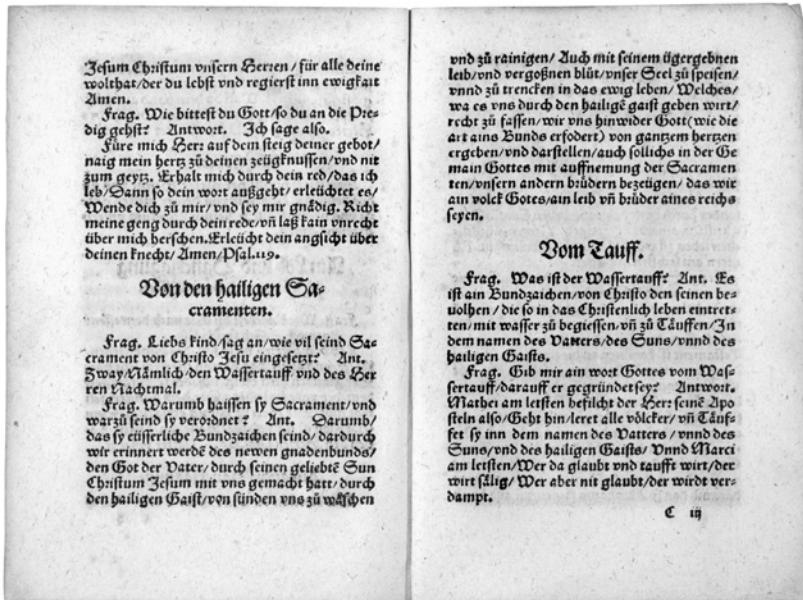 Jesum Christum vnsern Herren / für alle deine
wolthat / der du lebst vnd regierst inn ewigkait
Amen.
Frag. Wie bittest du Gott / so du an die Pre-
dig gehst? Antwort. Ich sage also.
Füre mich Herr auf dem steig deiner gebot /
naig mein hertz zů deinen zeügknussen / vnd nit
zum geytz. Erhalt mich durch dein red / das ich
leb / Dann so dein wort außgeht / erleüchtet es /
Wende dich zů mir / vnd sey mir gnådig. Richt
meine geng durch dein rede / vñ laß kain vnrecht
über mich herschen. Erleücht dein angsicht über
deinen knecht / Amen / Psal. 119.
Von den hailigen Sa-
cramenten.
Frag. Liebs kind / sag an / wie vil seind Sa-
crament von Christo Jesu eingesetzt? Ant.
Zway / Nämlich / den Wassertauff vnd des Her
ren Nachtmal.
Frag. Warumb haissen sy Sacrament / vnd
warzů seind sy verordnet? Ant. Darumb /
das sy eüsserliche Bundzaichen seind / dardurch
wir erinnert werdē des newen gnadenbunds /
den Got der Vater / durch seinen geliebtē Sun
Christum Jesum mit vns gemacht hatt / durch
den hailigen Gaist / von sünden vns zů wåschen
vnd zů rainigen / Auch mit seinem ügergebnen
leib / vnd vergoßnen blůt / vnser Seel zů speisen /
vnnd zů trencken in das ewig leben / Welches /
wa es vns durch den hailigē gaist geben wirt /
recht zů fassen / wir vns hinwider Gott (wie die
art ains Bunds erfodert) von gantzem hertzen
ergeben / vnd darstellen / auch sollichs in der Ge
main Gottes mit auffnemung der Sacramen
ten / vnsern andern brüdern bezeügen / das wir
ain volck Gotes / ain leib vñ brüder aines reichs
seyen.
Vom Tauff.
Frag. Was ist der Wassertauff? Ant. Es
ist ain Bundzaichen / von Christo den seinen be-
uolhen / die so in das Christenlich leben eintret-
ten / mit wasser zů begiessen / vñ zů Täuffen / In
dem namen des Vatters / des Suns / vnnd des
hailigen Gaists.
Frag. Gib mir ain wort Gottes vom Was-
sertauff / darauff er gegründet sey? Antwort.
Mathei am letsten befilcht der Herr seinē Apo
steln also / Geht hin / leret alle völcker / vñ Täuf-
fet sy inn dem namen des Vatters / vnnd des
Suns / vnd des hailigen Gaists / Vnnd Marci
am letsten / Wer da glaubt vnd taufft wirt / der
wirt sålig / Wer aber nit glaubt / der wirdt ver-
dampt.
C iij